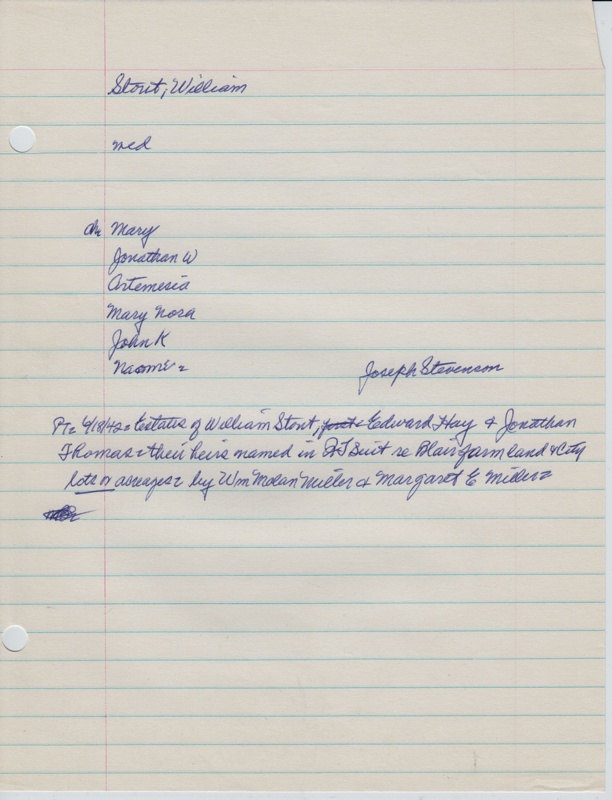 Stout, William
med
ch Mary
Jonathan W
Artemesia
Mary Nora
John K
Naomi =
Joseph Stevenson
4/18/42 = Estates of William Stout, Edward Hay & Jonathan
Thomas = their heirs named in QT Suit re Blair farm land & City
lots or acreages = by Wm Molan Miller & Margaret E Miller =